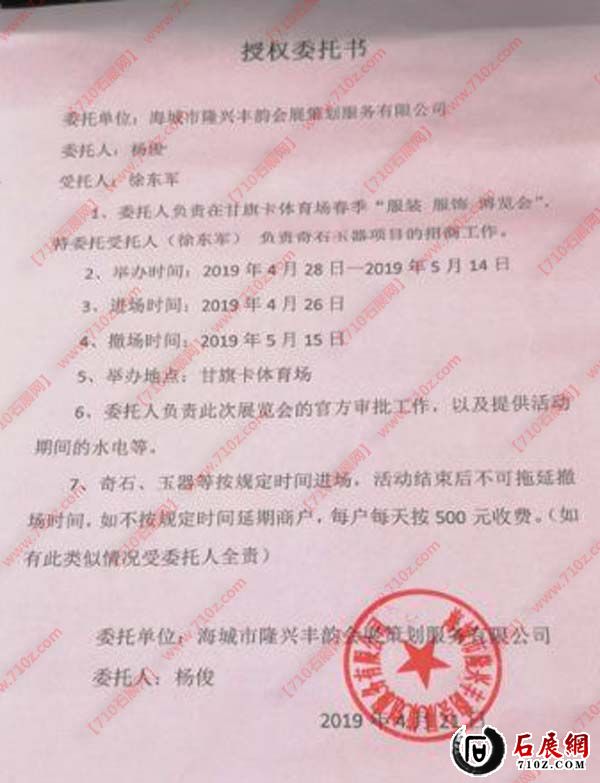 授权委托书
委托单位：海城市隆兴丰韵会展策划服务有限公司
委托人：杨俊
受托人：徐东军
1、委托人负责在甘旗卡体育场春季“服装 服饰 博览会”，
特委托受托人（徐东军） 负责奇石玉器项目的招商工作。
2、举办时间：2019 年 4 月 28 日—2019 年 5 月 14 日
3、进场时间：2019 年 4 月 26 日
4、撤场时间：2019 年 5 月 15 日
5、举办地点：甘旗卡体育场
6、委托人负责此次展览会的官方审批工作，以及提供活动
期间的水电等。
7、奇石、玉器等按规定时间进场，活动结束后不可拖延撤
场时间，如不按规定时间延期商户，每户每天按 500 元收费。（如
有此类似情况受委托人全责）
委托单位：海城市隆兴丰韵会展策划服务有限公司
委托人：杨俊
2019 年 4 月 21 日
海城市隆兴丰韵会展策划服务有限公司
【710石展网】www.710z.com
石展網
710Z.COM